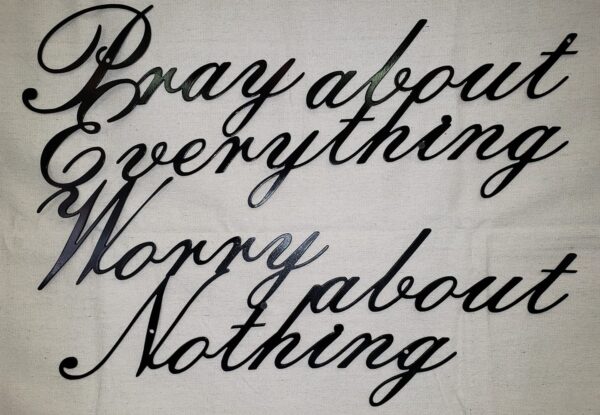 Pray about
Everything
Worry about
Nothing